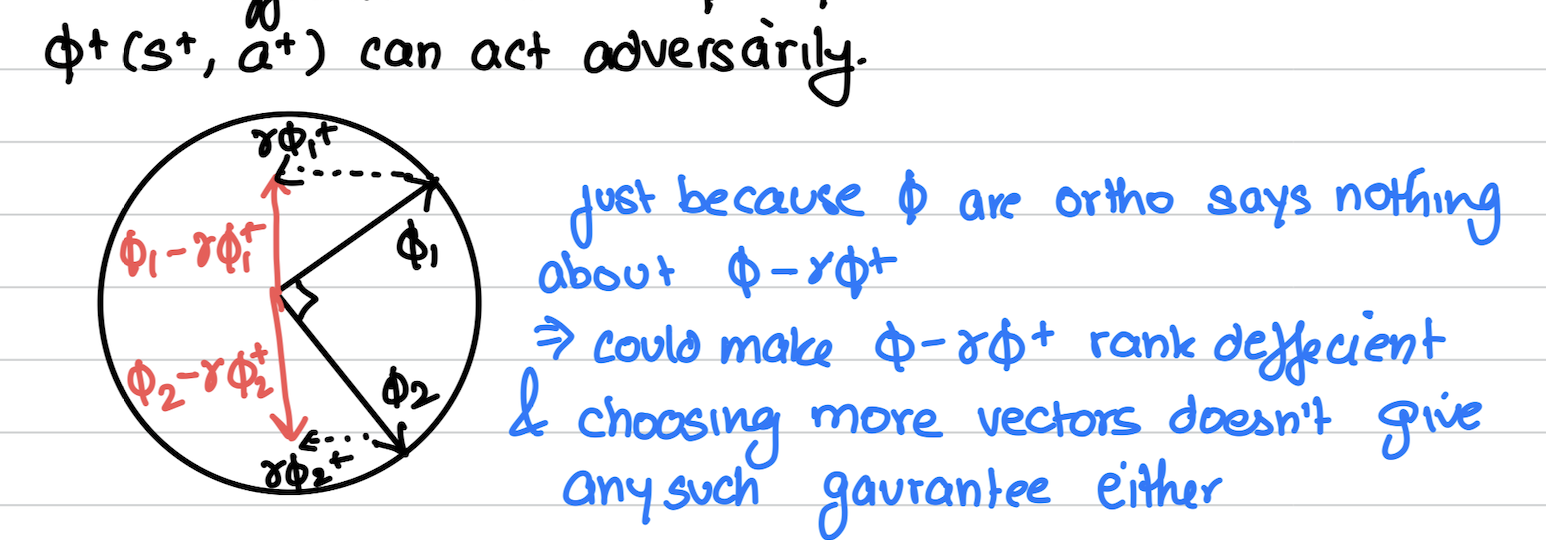 ϕ⁺(s⁺, a⁺) can act adversarily.
γϕ₁⁺
ϕ₁-γϕ₁⁺
ϕ₁
ϕ₂-γϕ₂⁺
ϕ₂
γϕ₂⁺
just because ϕ are ortho says nothing
about ϕ-γϕ⁺
⇒ could make ϕ-γϕ⁺ rank deffecient
& choosing more vectors doesn't give
any such gaurantee either